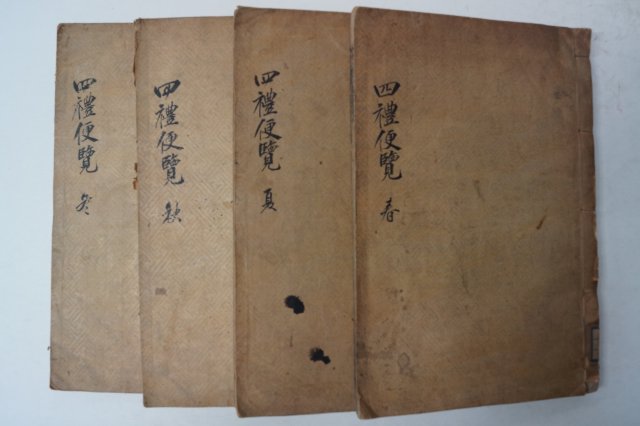 四禮便覽 春
四禮便覽 夏
四禮便覽 秋
四禮便覽 冬